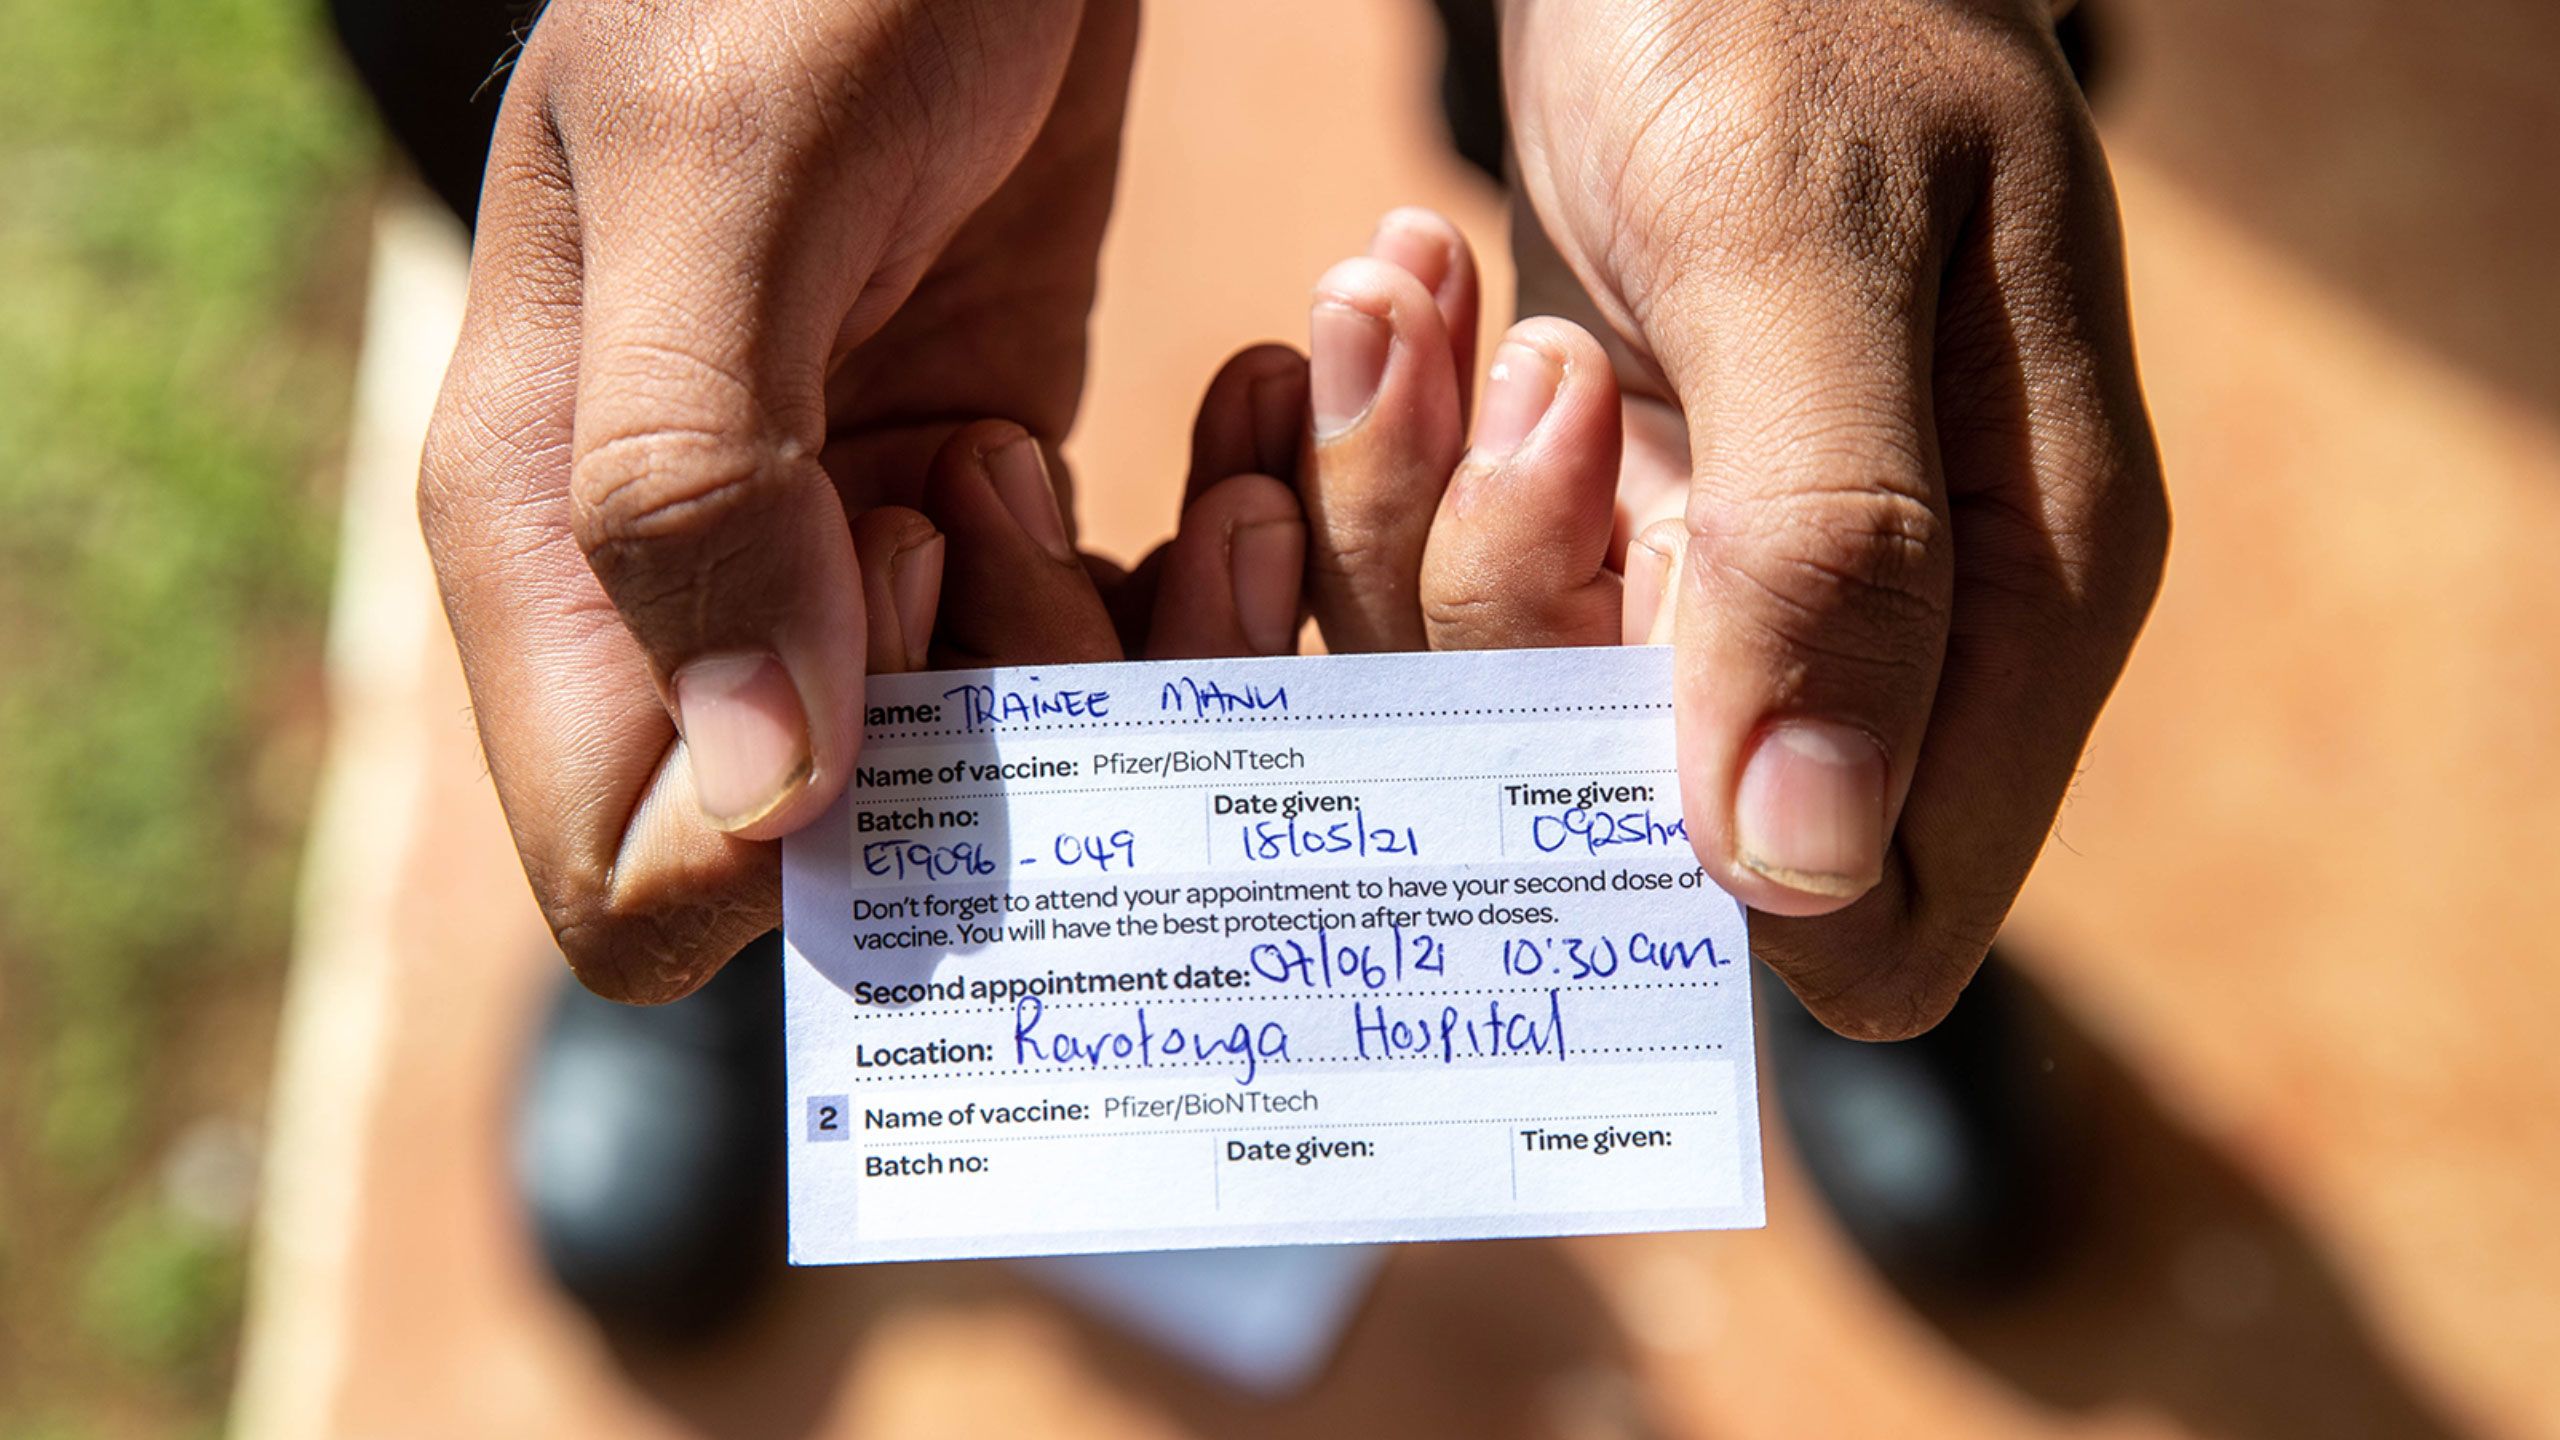 ame: TRAINEE MANU
Name of vaccine: Pfizer/BioNTtech
Batch no: Date given: Time given:
ET9096 - 049 18/05/21 0925h
Don't forget to attend your appointment to have your second dose of
vaccine. You will have the best protection after two doses.
Second appointment date: 07/06/21 10:30 am.
Location: Rarotonga Hospital
2 Name of vaccine: Pfizer/BioNTtech
Batch no: Date given: Time given: